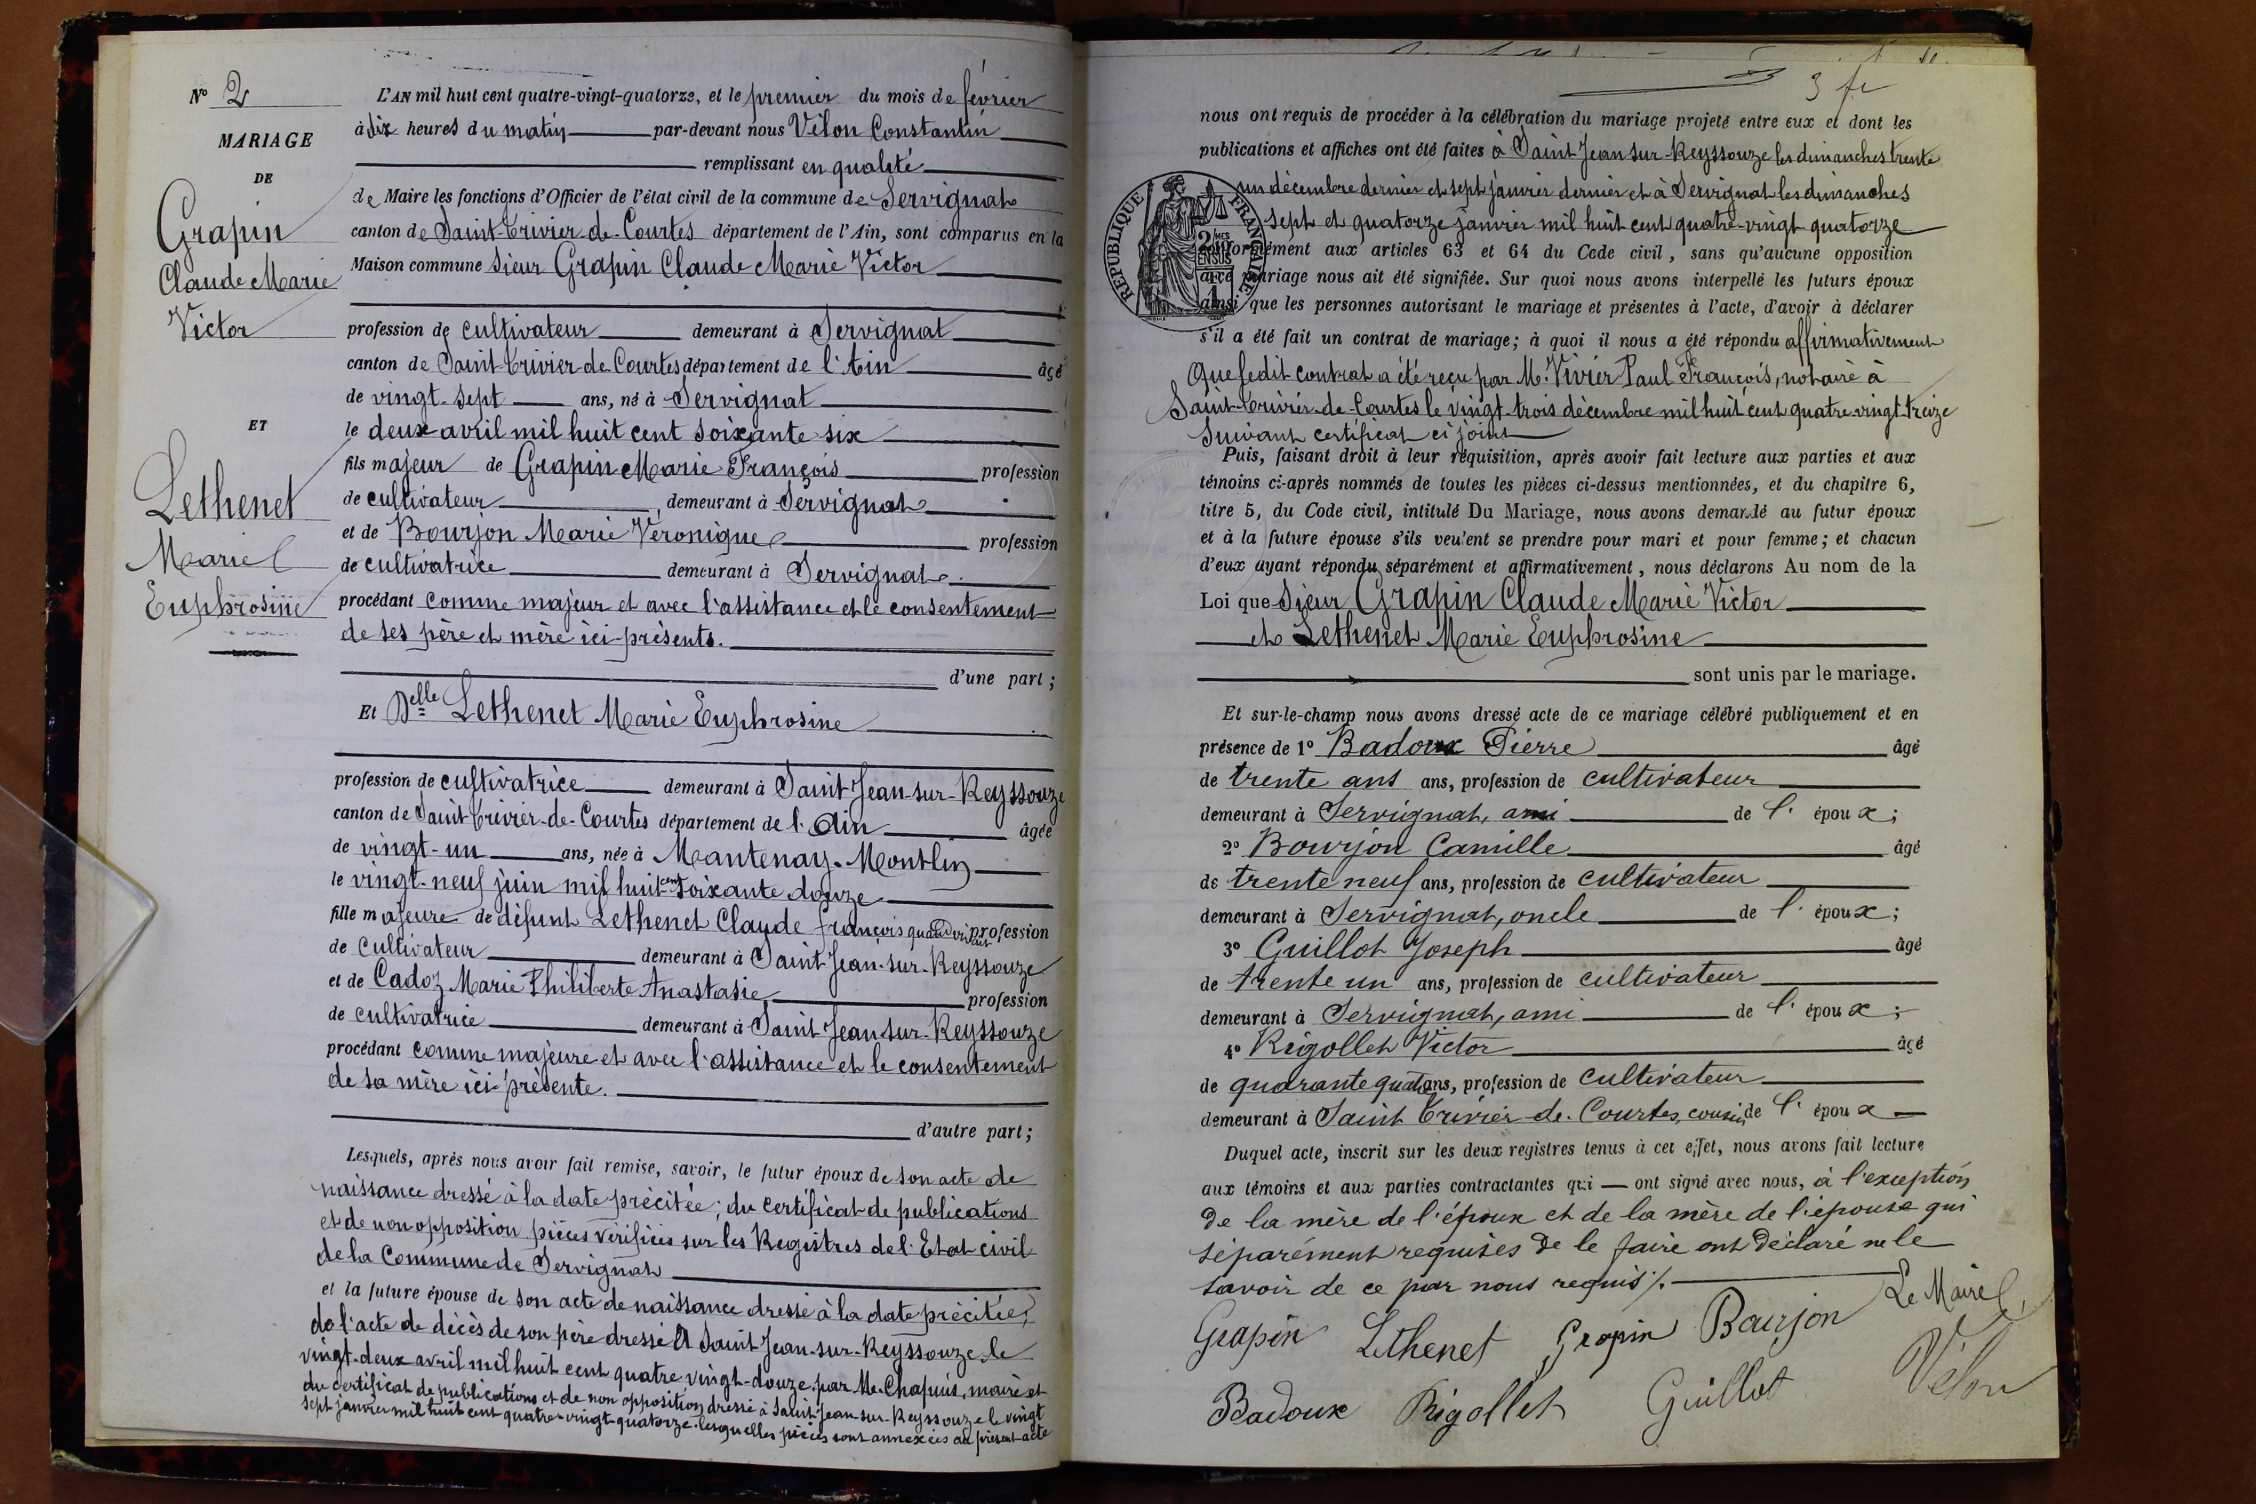 N° 2
MARIAGE
DE
Grapin
Claude Marie
Victor
ET
Lethenet
Marie
Euphrosine
L'AN mil huit cent quatre-vingt-quatorze, et le premier du mois de février
à dix heures du matin par-devant nous Vélon Constantin
remplissant en qualité
de Maire les fonctions d'Officier de l'état civil de la commune de Servignat
canton de Saint-Trivier-de-Courtes département de l'Ain, sont comparus en la
Maison commune Sieur Grapin Claude Marie Victor
profession de cultivateur demeurant à Servignat
canton de Saint-Trivier-de-Courtes département de l'Ain âgé
de vingt-sept ans, né à Servignat
le deux avril mil huit cent soixante six
fils majeur de Grapin Marie François profession
de cultivateur, demeurant à Servignat
et de Bourjon Marie Véronique profession
de cultivatrice demeurant à Servignat
procédant comme majeur et avec l'assistance et le consentement
de ses père et mère ici-présents.
d'une part;
Et Delle Lethenet Marie Euphrosine
profession de cultivatrice demeurant à Saint-Jean-sur-Reyssouze
canton de Saint-Trivier-de-Courtes département de l'Ain âgée
de vingt-un ans, née à Mantenay-Montlin
le vingt-neuf juin mil huit cent soixante douze
fille majeure de défunt Lethenet Claude françois quand vivant profession
de cultivateur demeurant à Saint-Jean-sur-Reyssouze
et de Cadoz Marie Philiberte Anastasie profession
de cultivatrice demeurant à Saint-Jean-sur-Reyssouze
procédant comme majeure et avec l'assistance et le consentement
de sa mère ici-présente.
d'autre part;
Lesquels, après nous avoir fait remise, savoir, le futur époux de son acte de
naissance dressé à la date précitée; du certificat de publications
et de non opposition pièces vérifiées sur les Registres de l'Etat civil
de la Commune de Servignat
et la future épouse de son acte de naissance dressé à la date précitée;
de l'acte de décès de son père dressé à Saint-Jean-sur-Reyssouze le
vingt-deux avril mil huit cent quatre vingt-douze par Mr. Chapuis, maire et
du certificat de publications et de non opposition dressé à Saint-Jean-sur-Reyssouze le vingt
sept janvier mil huit cent quatre-vingt-quatorze. lesquelles pièces sont annexées au présent acte
nous ont requis de procéder à la célébration du mariage projeté entre eux et dont les
publications et affiches ont été faites à Saint-Jean-sur-Reyssouze les dimanches trente
un décembre dernier et sept janvier dernier et à Servignat les dimanches
sept et quatorze janvier mil huit cent quatre-vingt quatorze
RÉPUBLIQUE FRANÇAISE
conformément aux articles 63 et 64 du Code civil, sans qu'aucune opposition
au dit mariage nous ait été signifiée. Sur quoi nous avons interpellé les futurs époux
ainsi que les personnes autorisant le mariage et présentes à l'acte, d'avoir à déclarer
s'il a été fait un contrat de mariage; à quoi il nous a été répondu affirmativement
Que ledit contrat a été reçu par Me. Vivier Paul François, notaire à
Saint-Trivier-de-Courtes le vingt-trois décembre mil huit cent quatre-vingt-treize
suivant certificat ci joint
Puis, faisant droit à leur réquisition, après avoir fait lecture aux parties et aux
témoins ci-après nommés de toutes les pièces ci-dessus mentionnées, et du chapitre 6,
titre 5, du Code civil, intitulé Du Mariage, nous avons demandé au futur époux
et à la future épouse s'ils veulent se prendre pour mari et pour femme; et chacun
d'eux ayant répondu séparément et affirmativement, nous déclarons Au nom de la
Loi que Sieur Grapin Claude Marie Victor
et Lethenet Marie Euphrosine
sont unis par le mariage.
Et sur-le-champ nous avons dressé acte de ce mariage célébré publiquement et en
présence de 1° Badoux Pierre âgé
de trente ans ans, profession de cultivateur
demeurant à Servignat, ami de l'époux;
2° Bourjon Camille âgé
de trente neuf ans, profession de cultivateur
demeurant à Servignat, oncle de l'époux;
3° Guillot Joseph âgé
de trente un ans, profession de cultivateur
demeurant à Servignat, ami de l'époux;
4° Rigollet Victor âgé
de quarante quatre ans, profession de cultivateur
demeurant à Saint Trivier-de-Courtes, cousin de l'époux
Duquel acte, inscrit sur les deux registres tenus à cet effet, nous avons fait lecture
aux témoins et aux parties contractantes qui — ont signé avec nous, à l'exception
de la mère de l'époux et de la mère de l'épouse qui
séparément requises de le faire ont déclaré ne le
savoir de ce par nous requis ./.
Le Maire
Grapin Lethenet Grapin Bourjon
Vélon
Badoux Rigollet Guillot